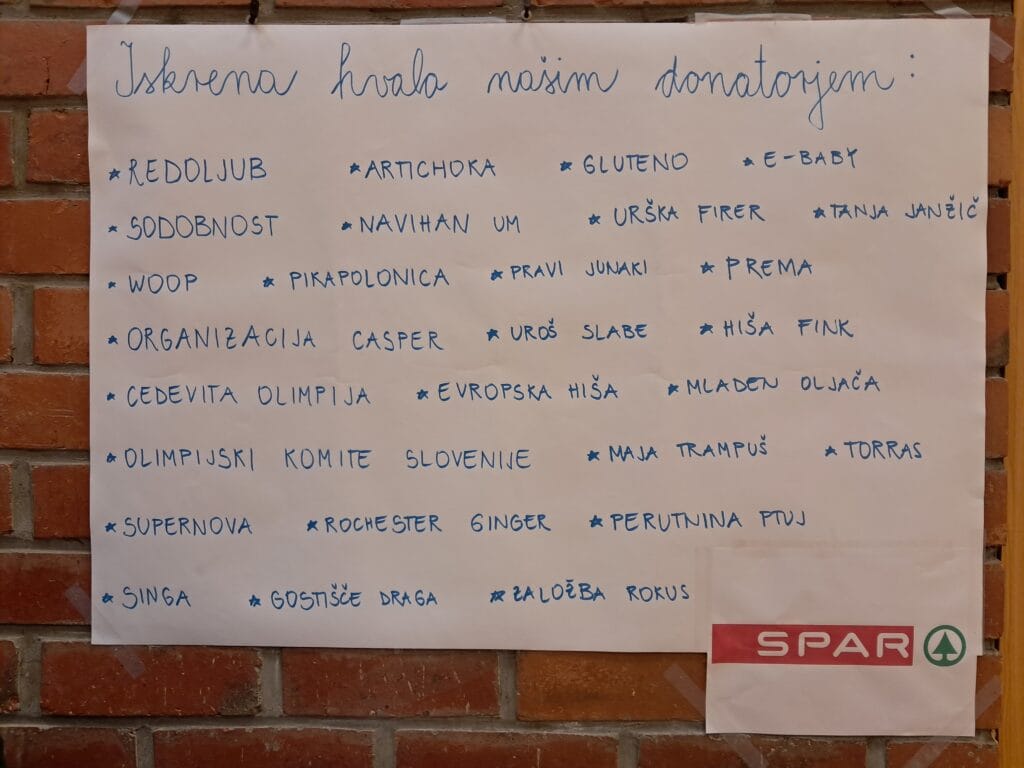 Iskrena hvala našim donatorjem:
* REDOLJUB * ARTICHOKA * GLUTENO * E-BABY
* SODOBNOST * NAVIHAN UM * URŠKA FIRER * TANJA JANŽIČ
* WOOP * PIKAPOLONICA * PRAVI JUNAKI * PREMA
* ORGANIZACIJA CASPER * UROŠ SLABE * HIŠA FINK
* CEDEVITA OLIMPIJA * EVROPSKA HIŠA * MLADEN OLJAČA
* OLIMPIJSKI KOMITE SLOVENIJE * MAJA TRAMPUŠ * TORRAS
* SUPERNOVA * ROCHESTER GINGER * PERUTNINA PTUJ
* SINGA * GOSTIŠČE DRAGA * ZALOŽBA ROKUS
SPAR